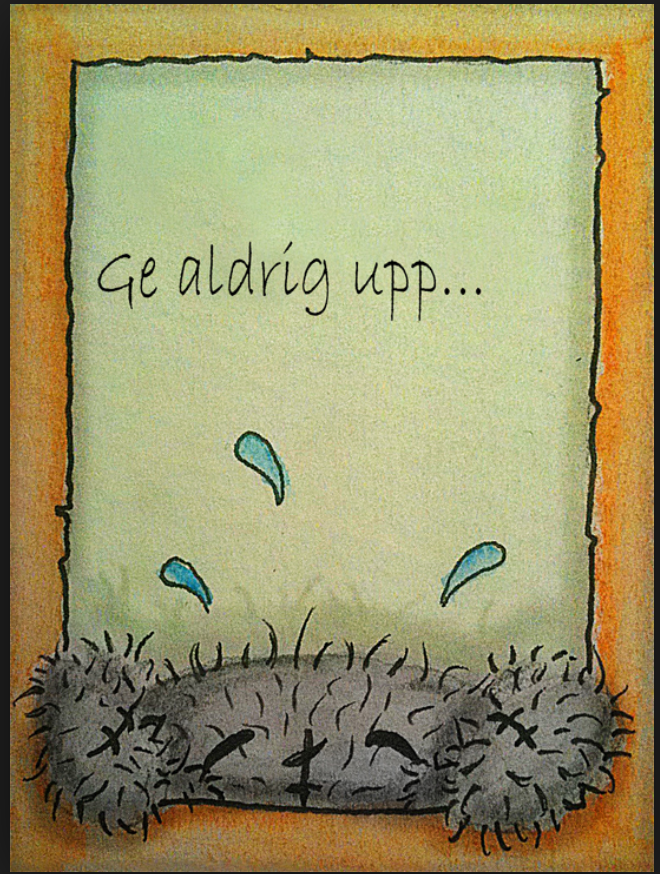 Ge aldrig upp...